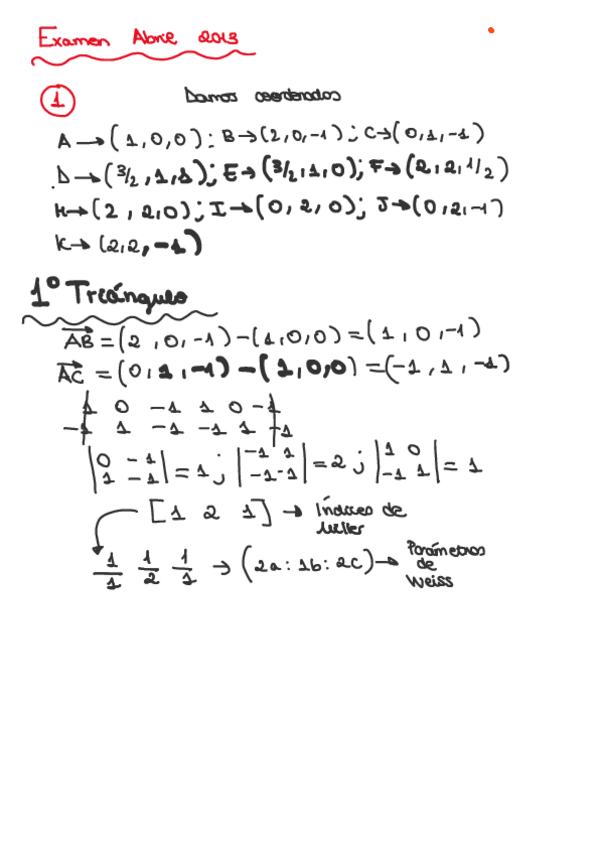 Examen Abril 2013
1 Damos coordenadas
A → (1,0,0); B→(2,0,-1); C→(0,1,-1)
D→(3/2,1,1); E→(3/2,1,0); F→(2,2,1/2)
H→(2,2,0); I→(0,2,0); J→(0,2,-1)
K→(2,2,-1)
1º Triángulo
AB = (2,0,-1)-(1,0,0)=(1,0,-1)
AC = (0,1,-1)-(1,0,0)=(-1,1,-1)
1 0 -1 1 0 -1
-1 1 -1 -1 1 -1
|0 -1| = 1; |-1 1| = 2; |1 0| = 1
|1 -1| |-1 -1| |-1 1|
[1 2 1] → Índices de
Miller
1/1 1/2 1/1 → (2a:1b:2c) → Parámetros
de
Weiss